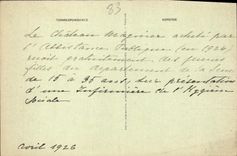 83
CORRESPONDANCE
ADRESSE
Le Château Magnier acheté par
l'Assistance Publique en 1924,
reçoit gratuitement des jeunes
filles du département de la Seine
de 15 à 35 ans, sur présentation
d'une Infirmière de l'Hygiène
Sociale
Avril 1926